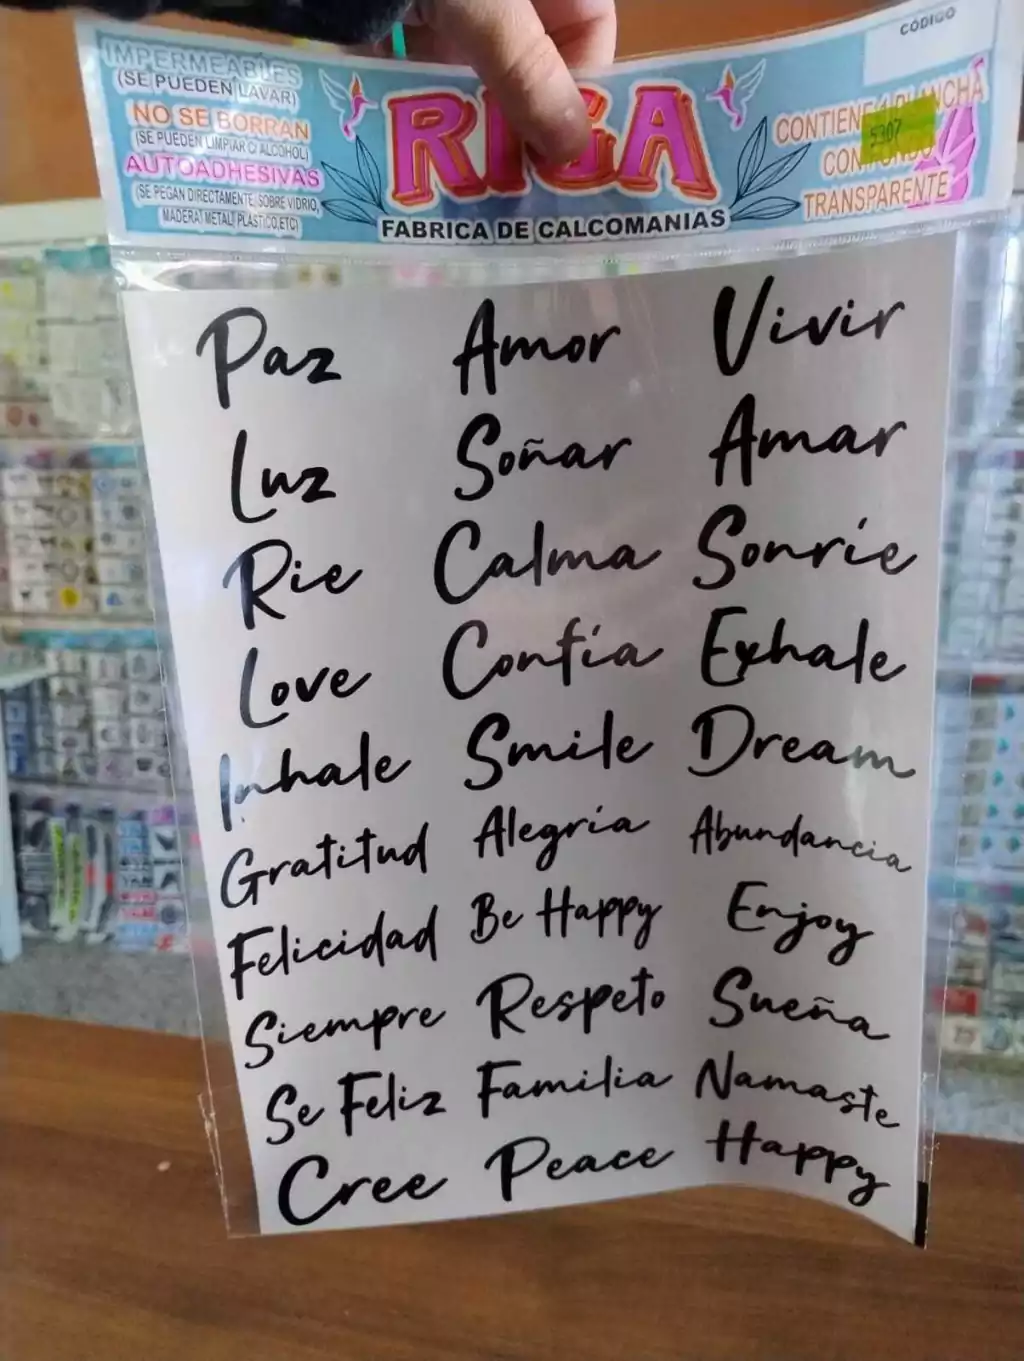 IMPERMEABLES
(SE PUEDEN LAVAR)
NO SE BORRAN
(SE PUEDEN LIMPIAR C/ ALCOHOL)
AUTOADHESIVAS
(SE PEGAN DIRECTAMENTE, SOBRE VIDRIO,
MADERA, METAL, PLASTICO, ETC)
RIGA
FABRICA DE CALCOMANIAS
CÓDIGO
5307
CONTIENE 1 PLANCHA
CON FONDO
TRANSPARENTE
Paz Amor Vivir
Luz Soñar Amar
Rie Calma Sonríe
Love Confía Exhale
Inhale Smile Dream
Gratitud Alegría Abundancia
Felicidad Be Happy Enjoy
Siempre Respeto Sueña
Se Feliz Familia Namaste
Cree Peace Happy